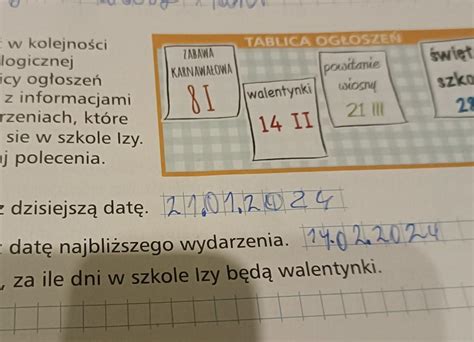 w kolejności
logicznej
icy ogłoszeń
z informacjami
rzeniach, które
sie w szkole Izy.
j polecenia.
TABLICA OGŁOSZEŃ
ZABAWA
KARNAWAŁOWA
8 I
walentynki
14 II
powitanie
wiosny
21 III
święt
szko
28
z dzisiejszą datę. 21.01.2024
datę najbliższego wydarzenia. 14.02.2024
, za ile dni w szkole Izy będą walentynki.